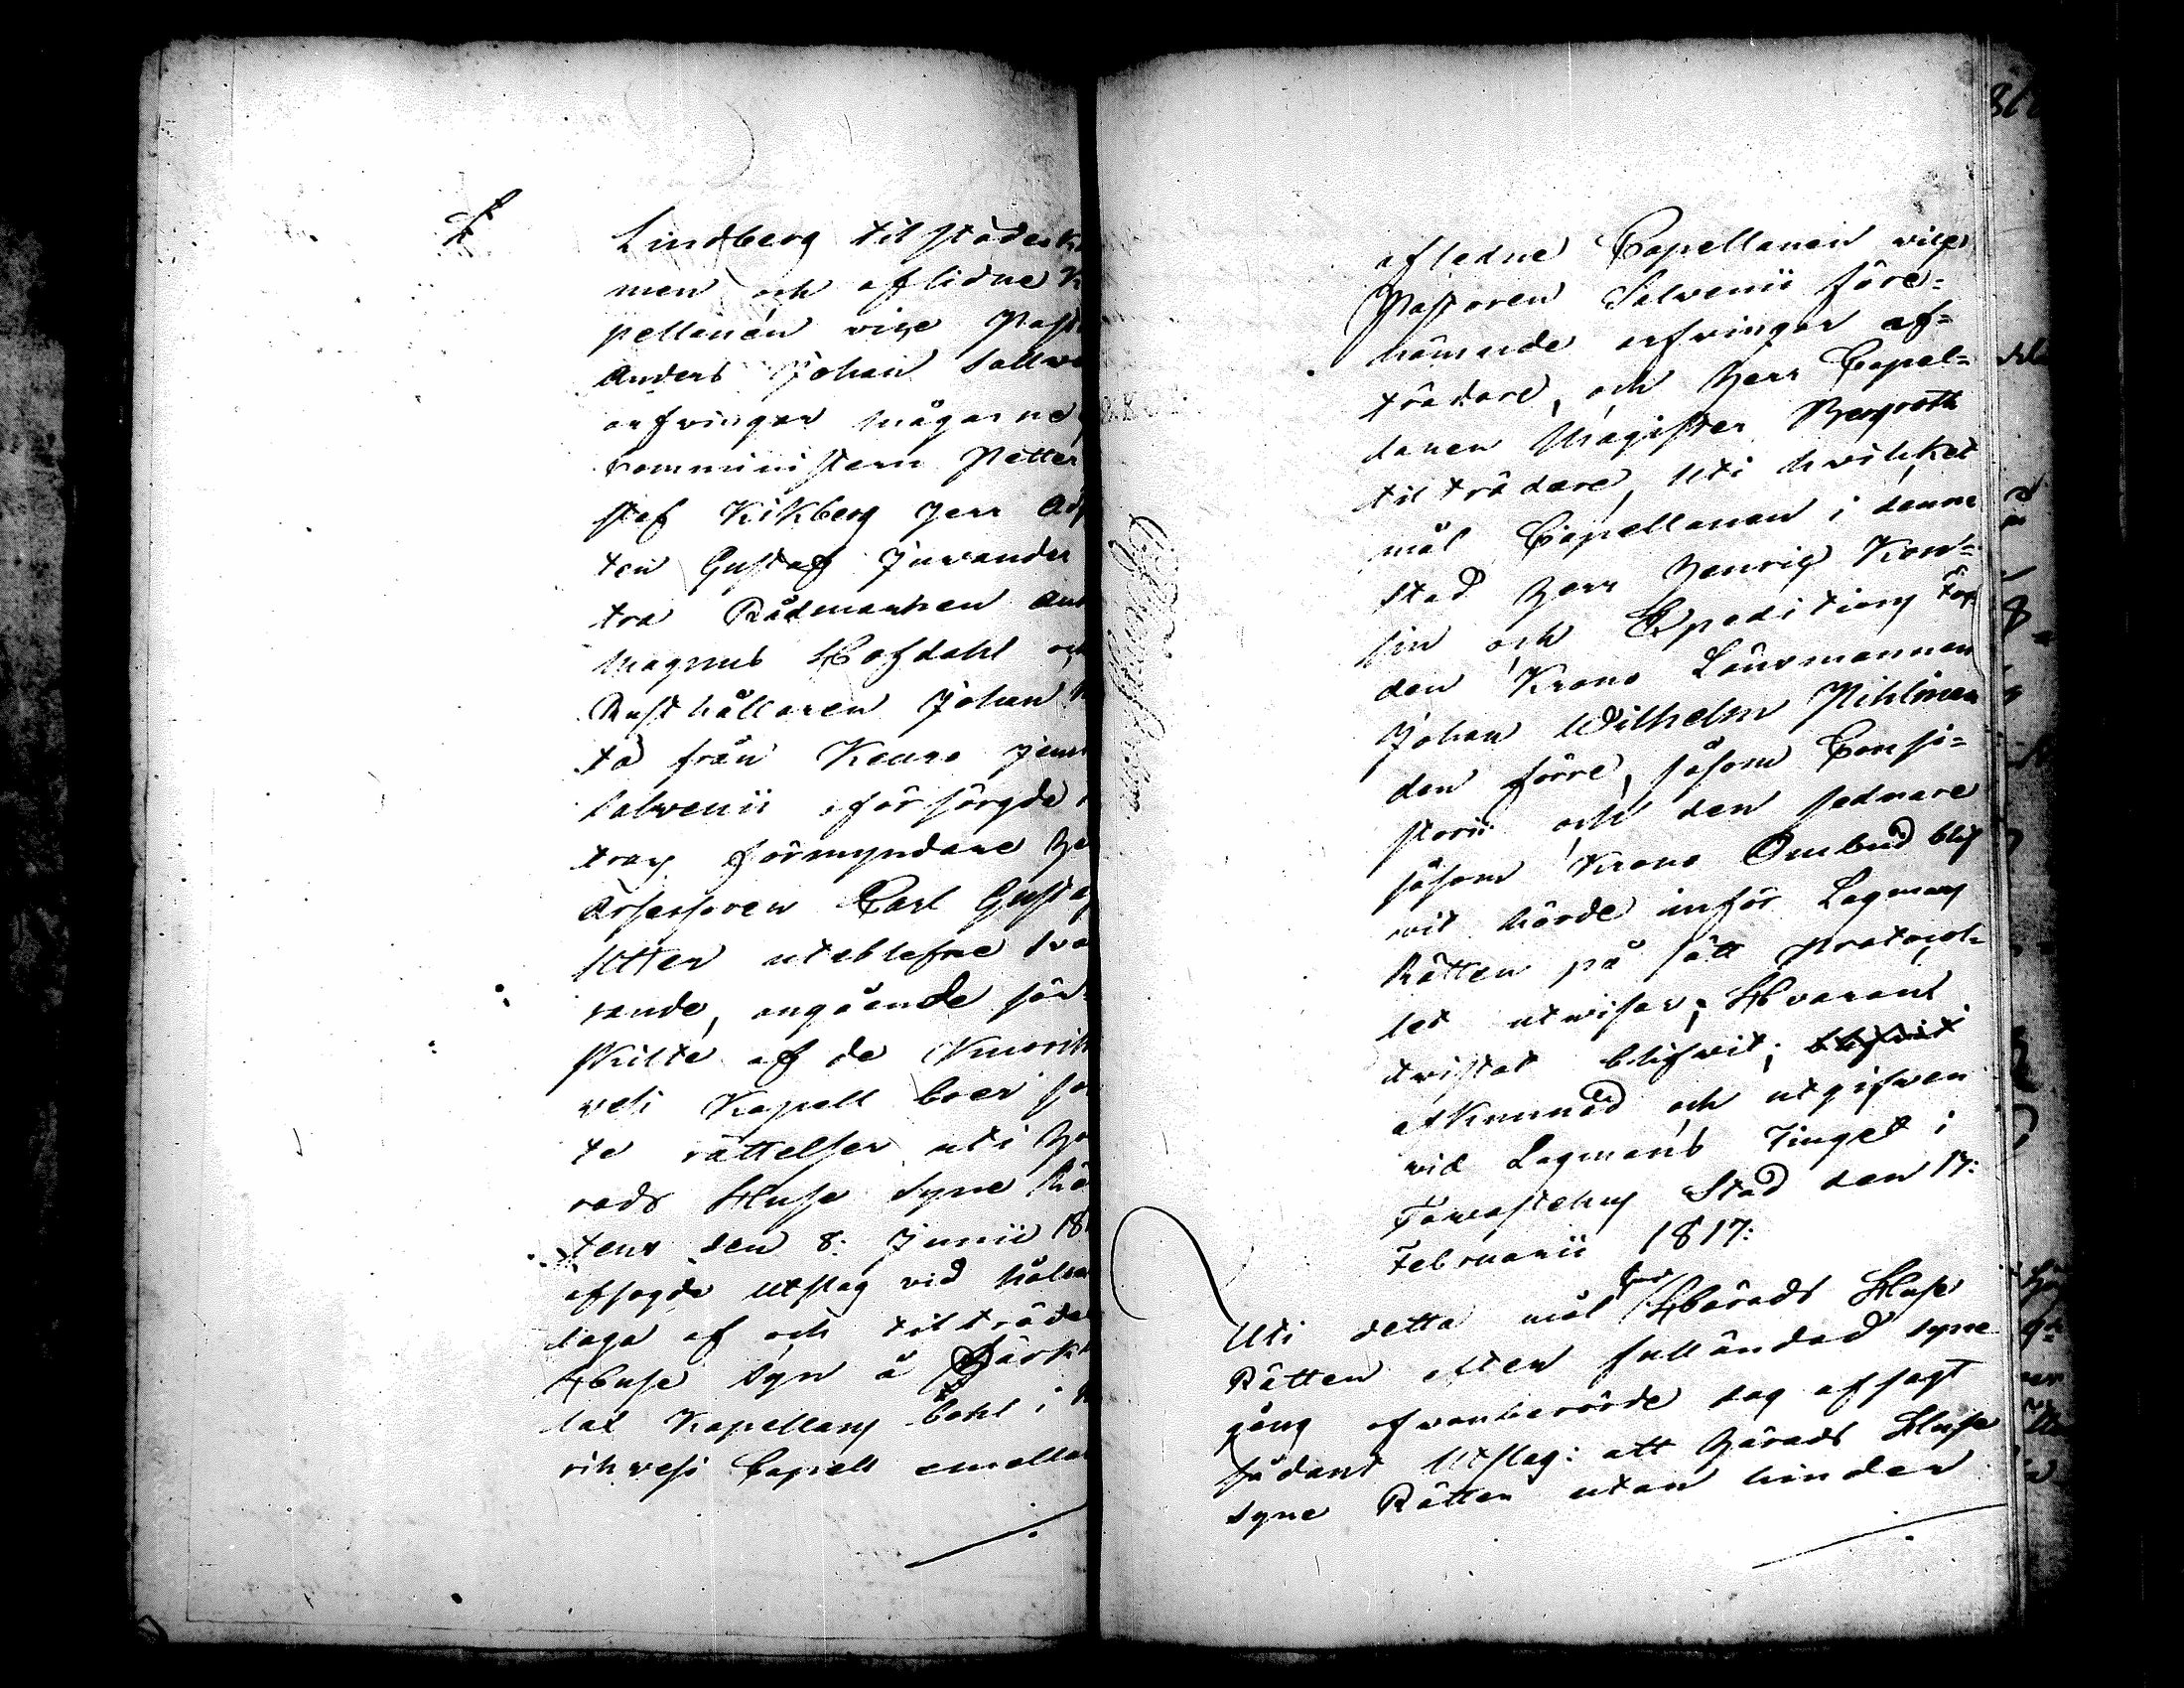 Lindberg tilstädesk
men och aflidne K
pellanen vice Past
Anders Johan Sallve
arfvingar mågarne
Comministern Petter
staf Kikberg Herr Adj
ten Gustaf Juvander
tra Rådmannen And
Magnus Hofdahl och
Rusthållaren Johan
tå från Keuro jemt
Salvenii oförsörgde
trars Förmyndare He
Assessoren Carl Gustaf
Utter uteblefne sva
rande, angående sär-
skilte af de Kuorih
vesi Kapell boer sö
te rättelser uti Hä
rads Husesyne Rä
tens den 8: Junii 18
afsagde Utslag vid hålne
laga af och tilträdes
Huse Syn å Pärki
lax Kapellans bohl i K
rihvesi Capell emellan
afledne Capellanen vice
Pastoren Salvenii före-
nämnde arfvingar af-
trädare, och Herr Capel-
lanen Magister Bergroth
tilträdare, Uti hvilket
mål Capellanen i denne
Stad Herr Henric Kon-
sin och Expeditions Fog
den Krono Länsmannen
Johan Wilhelm Pihlman
den förre, såsom Consi-
storii och den sednare
såsom Krono Ombud blif
vit hörde inför Lagmans
Rätten på sätt Protocol-
let utvisar; Hvarom
tvistat blifvit; blifvit
afkunnad och utgifven
vid Lagmans Tinget i
Tavastehus Stad den 17:
Februarii 1817:
Uti detta mål har Härads Huse
Rätten efter fulländad syne
gång ofvanberörde dag afsagt
sådant Utslag: att Härads Huse
syne Rätten utan hinder